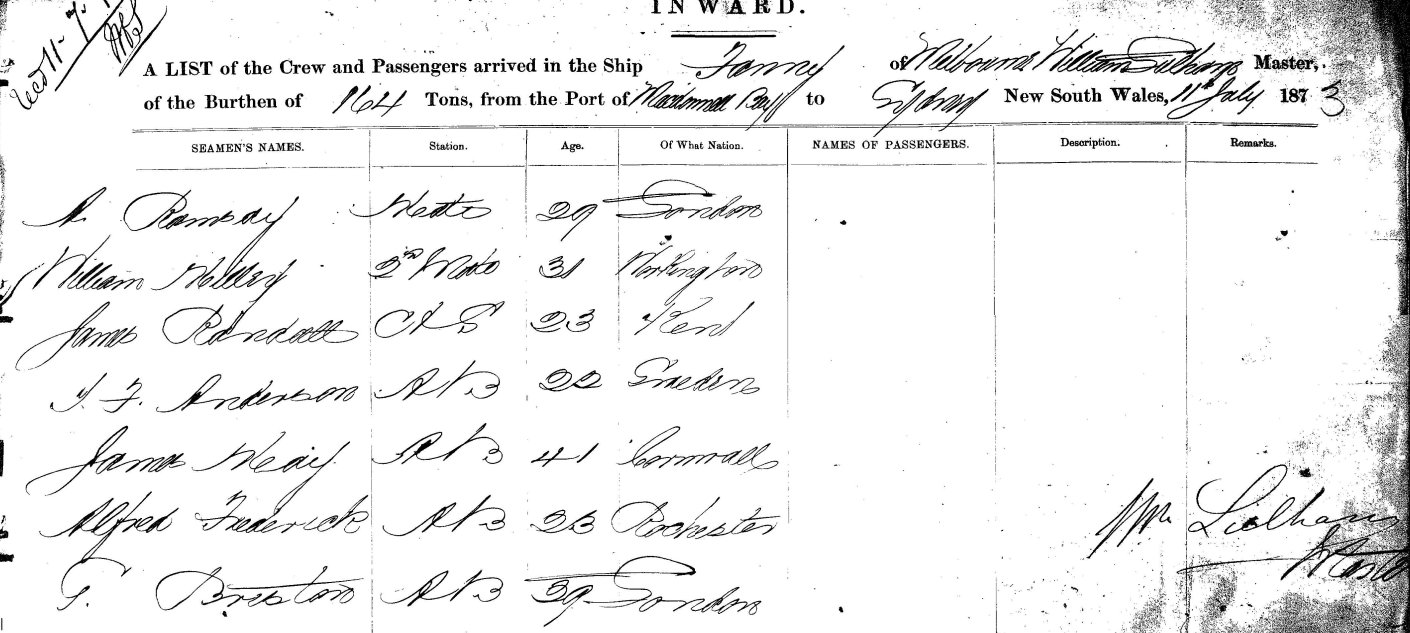 INWARD.
A LIST of the Crew and Passengers arrived in the Ship Fanny of Melbourne William Master,
of the Burthen of 164 Tons, from the Port of Bay to Sydney New South Wales, 11th July 1873
SEAMEN'S NAMES. Station. Age. Of What Nation. NAMES OF PASSENGERS. Description. Remarks.
A. Ramsay Mate 29 London
William Kelley 2nd Mate 31 Workington
James Randall C & S 23 Kent
F. Anderson AB 22 Sweden
James AB 41 Cornwall
Alfred Frederick AB 23 Rochester
Wm
G. Brixton AB 39 London